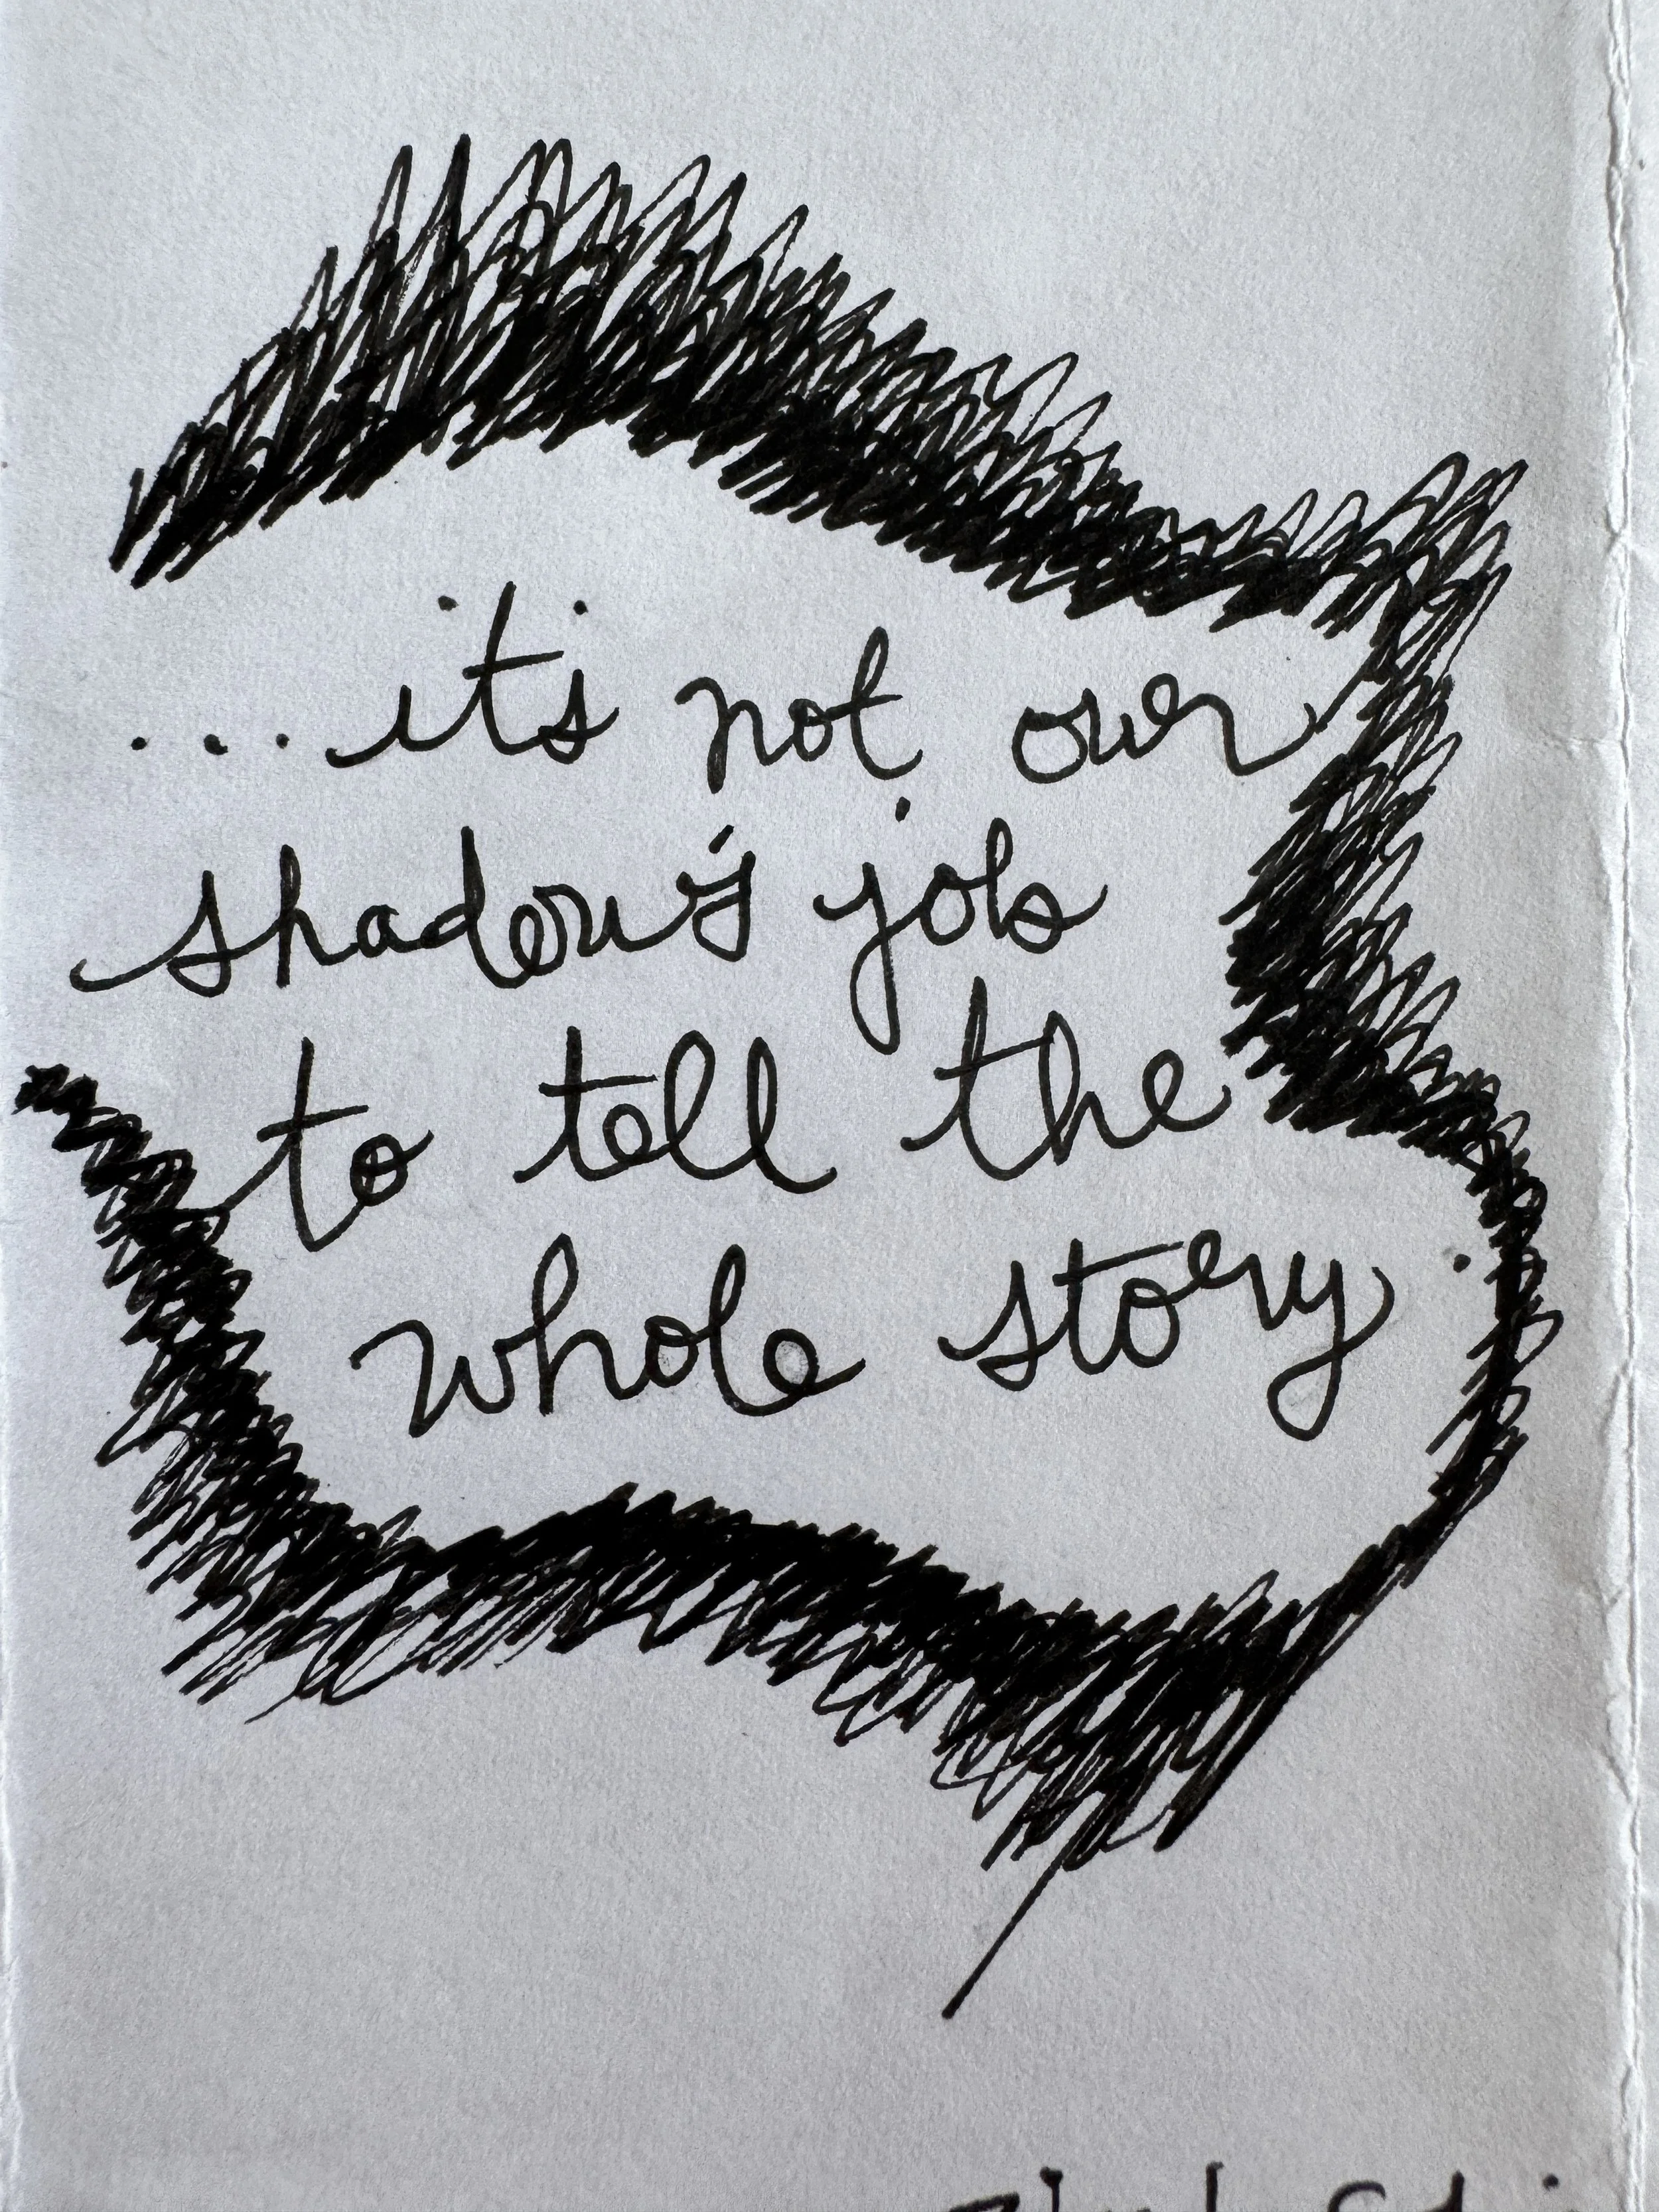 ...it's not our
shadow's job
to tell the
whole story.